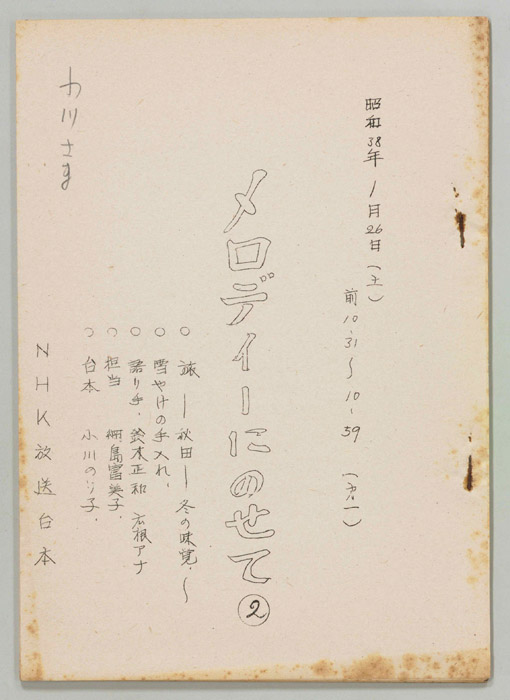 昭和38年1月26日(土)
前10.31〜10.59 (才一)
メロディーにのせて②
○ 旅 ― 秋田 ― 冬の味覚.〜
○ 雪やけの手入れ、
○ 語り手. 鈴木正和 広根アナ
○ 担当 棚島富美子.
○ 台本 小川のり子.
NHK放送台本
小川さま